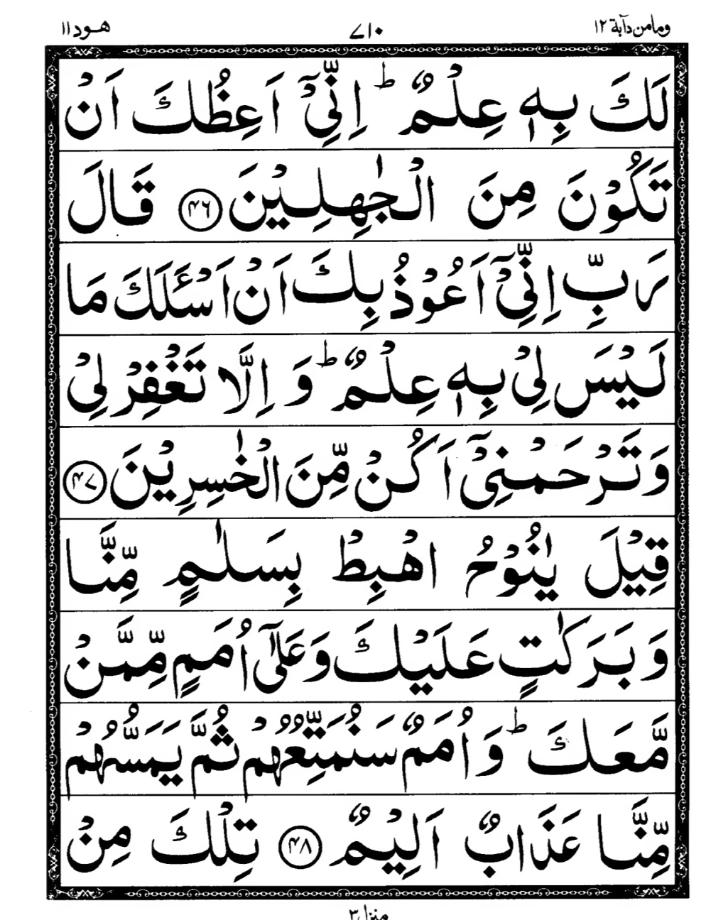 ومامن دآبة ١٢ ٧١٠ هود ١١
لَكَ بِهٖ عِلْمٌ ؕ اِنِّیْۤ اَعِظُكَ اَنْ
تَكُوْنَ مِنَ الْجٰهِلِیْنَ ﴿۴۶﴾ قَالَ
رَبِّ اِنِّیْۤ اَعُوْذُ بِكَ اَنْ اَسْـَٔلَكَ مَا
لَیْسَ لِیْ بِهٖ عِلْمٌ ؕ وَ اِلَّا تَغْفِرْ لِیْ
وَتَرْحَمْنِیْۤ اَكُنْ مِّنَ الْخٰسِرِیْنَ ﴿۴۷﴾
قِیْلَ یٰنُوْحُ اهْبِطْ بِسَلٰمٍ مِّنَّا
وَبَرَكٰتٍ عَلَیْكَ وَعَلٰۤی اُمَمٍ مِّمَّنْ
مَّعَكَ ؕ وَاُمَمٌ سَنُمَتِّعُهُمْ ثُمَّ یَمَسُّهُمْ
مِّنَّا عَذَابٌ اَلِیْمٌ ﴿۴۸﴾ تِلْكَ مِنْ
منزل ٣